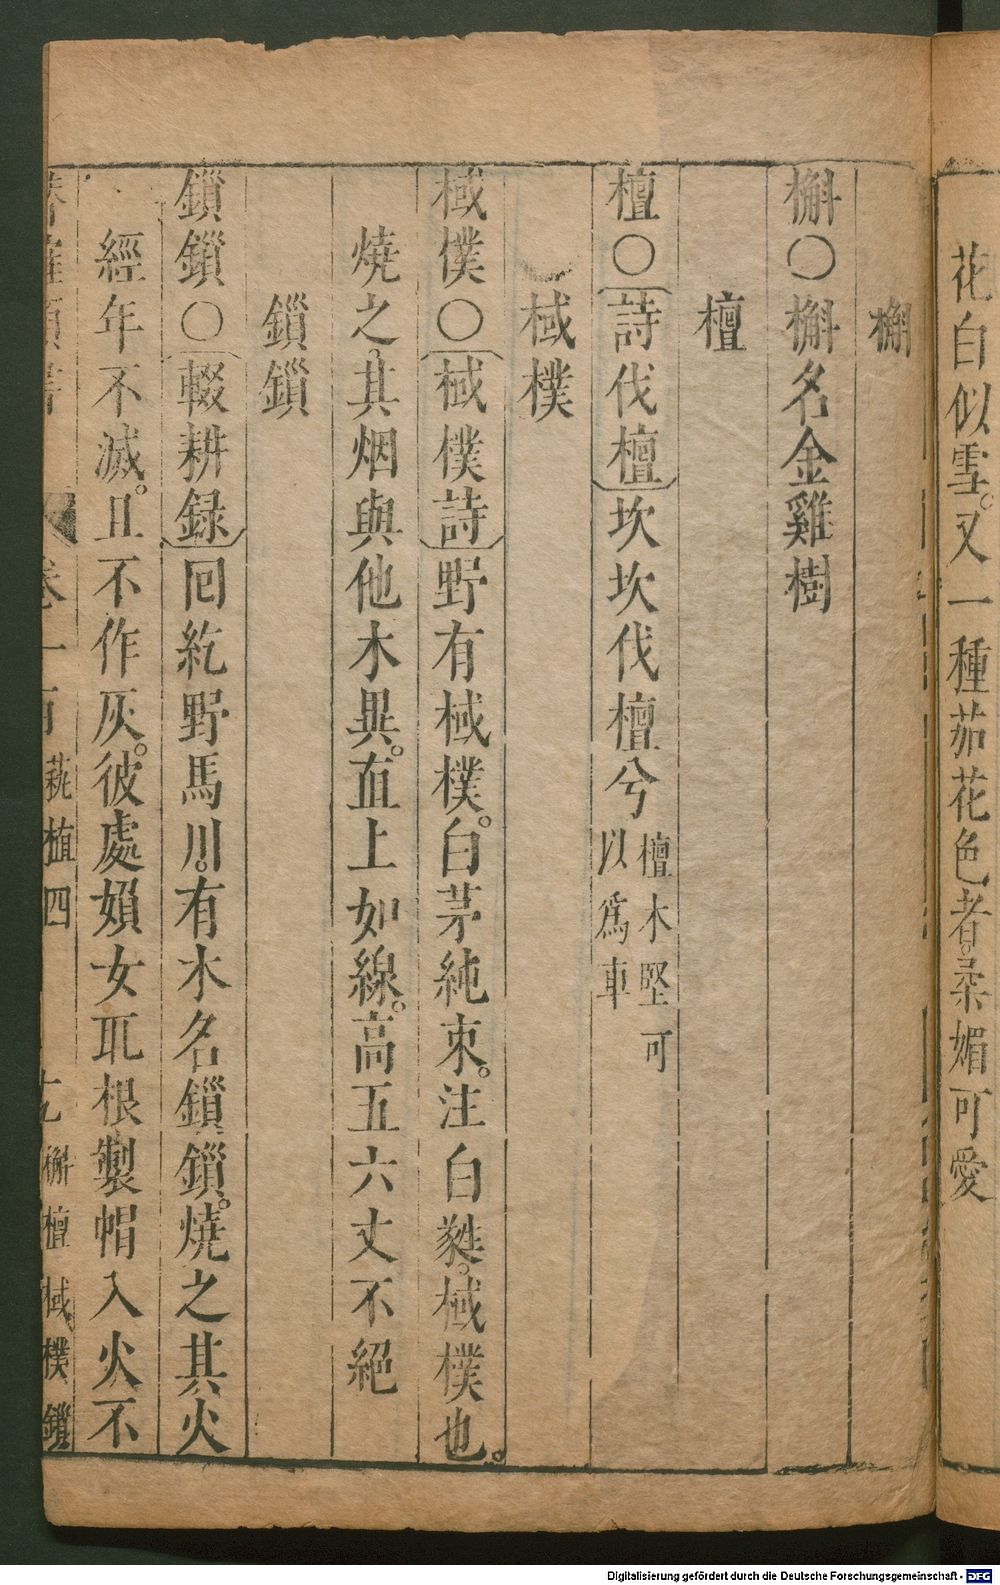 花白似雪。又一種茄花色者。柔媚可愛
槲
槲○槲名金雞樹
檀
檀○詩伐檀坎坎伐檀兮檀木堅可以爲車
棫樸
棫樸○棫樸詩野有棫樸。白茅純束。注白蕤。棫樸也。
燒之。其烟與他木異。直上如線。高五六丈不絕
鎻鎻
鎻鎻○輟耕録囘紇野馬川。有木名鎻鎻。燒之其火
經年不滅。且不作灰。彼處婦女取根製帽入火不
卷一百 蓺植四 槲檀棫樸鎻
Digitalisierung gefördert durch die Deutsche Forschungsgemeinschaft - DFG